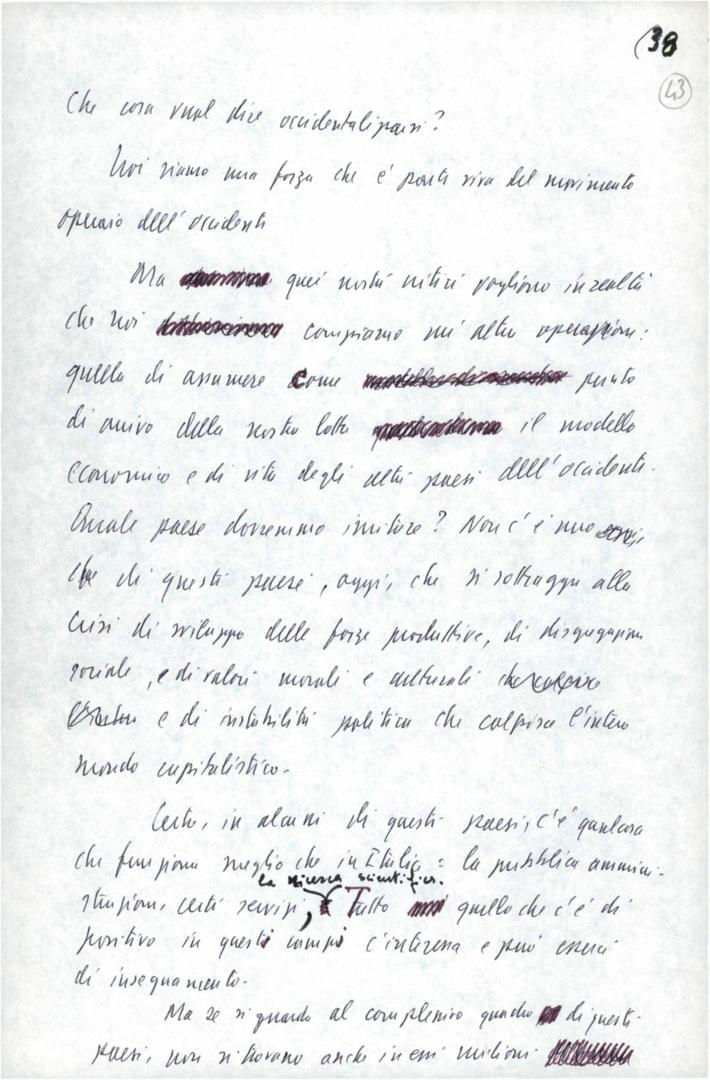 (38
43
Che cosa vuol dire occidentalizzarsi?
Noi siamo una forza che è parte viva del movimento
operaio dell'occidente
Ma quei nostri critici vogliono in realtà
che noi compiamo un'altra operazione:
quella di assumere come punto
di arrivo della nostra lotta il modello
economico e di vita degli altri paesi dell'occidente.
Quale paese dovremmo imitare? Non c'è uno
che di questi paesi, oggi, che si sottragga alla
crisi di sviluppo delle forze produttive, di disgregazione
sociale, e di valori morali e culturali
e di instabilità politica che colpisce l'intero
mondo capitalistico.
Certo, in alcuni di questi paesi, c'è qualcosa
che funziona meglio che in Italia: la pubblica ammini-
la ricerca scientifica.
strazione, certi servizi, Tutto quello che c'è di
positivo in questi campi c'interessa e può esserci
di insegnamento.
Ma se si guarda al complessivo quadro di questi
paesi, non si trovano anche in essi milioni